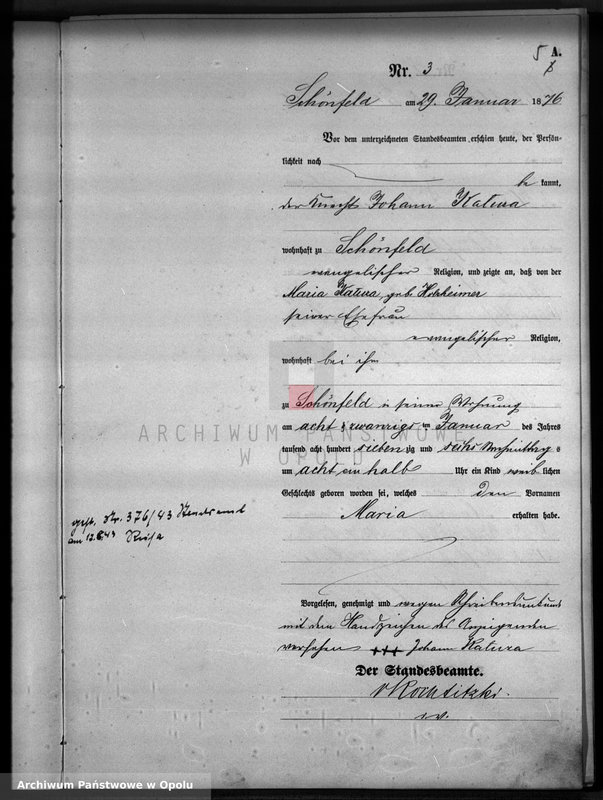 5 A.
Nr. 3
Schönfeld am 29. Januar 1876
Vor dem unterzeichneten Standesbeamten erschien heute, der Persön-
lichkeit nach
be kannt,
der Knecht Johann Katura
wohnhaft zu Schönfeld
evangelischer Religion, und zeigte an, daß von der
Maria Katura, geb. Holzheimer
seiner Ehefrau
evangelischer Religion,
wohnhaft bei ihm
zu Schönfeld in seiner Wohnung
am acht & zwanzigs ten Januar des Jahres
tausend acht hundert sieben zig und sechs Vormittag s
um acht ein halb Uhr ein Kind weib lichen
Geschlechts geboren worden sei, welches den Vornamen
Maria
erhalten habe.
gest. Nr. 376/43 Standesamt
am 12.6.43 Riesa
Vorgelesen, genehmigt und wegen Schreibensunkunde
mit dem Handzeichen des Anzeigenden
versehen +++ Johann Katura
Der Standesbeamte.
v Kochtitzki.
i.V.
ARCHIWUM PAŃSTWOWE
W OPOLU
Archiwum Państwowe w Opolu